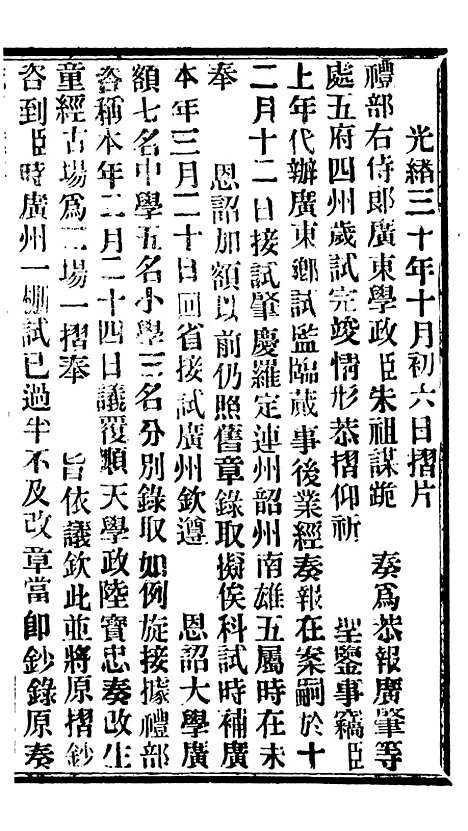 光緒三十年十月初六日摺片
禮部右侍郎廣東學政臣朱祖謀跪　奏爲恭報廣肇等
處五府四州歲試完竣情形恭摺仰祈　聖鑒事竊臣
上年代辦廣東鄉試監臨蕆事後業經奏報在案嗣於十
二月十二日接試肇慶羅定連州韶州南雄五屬時在未
奉　恩詔加額以前仍照舊章錄取擬俟科試時補廣
本年三月二十日回省接試廣州欽遵　恩詔大學廣
額七名中學五名小學三名分別錄取如例旋接據禮部
咨稱本年二月二十四日議覆順天學政陸寶忠奏改生
童經古場爲二場一摺奉　旨依議欽此並將原摺鈔
咨到臣時廣州一棚試已過半不及改章當卽鈔錄原奏